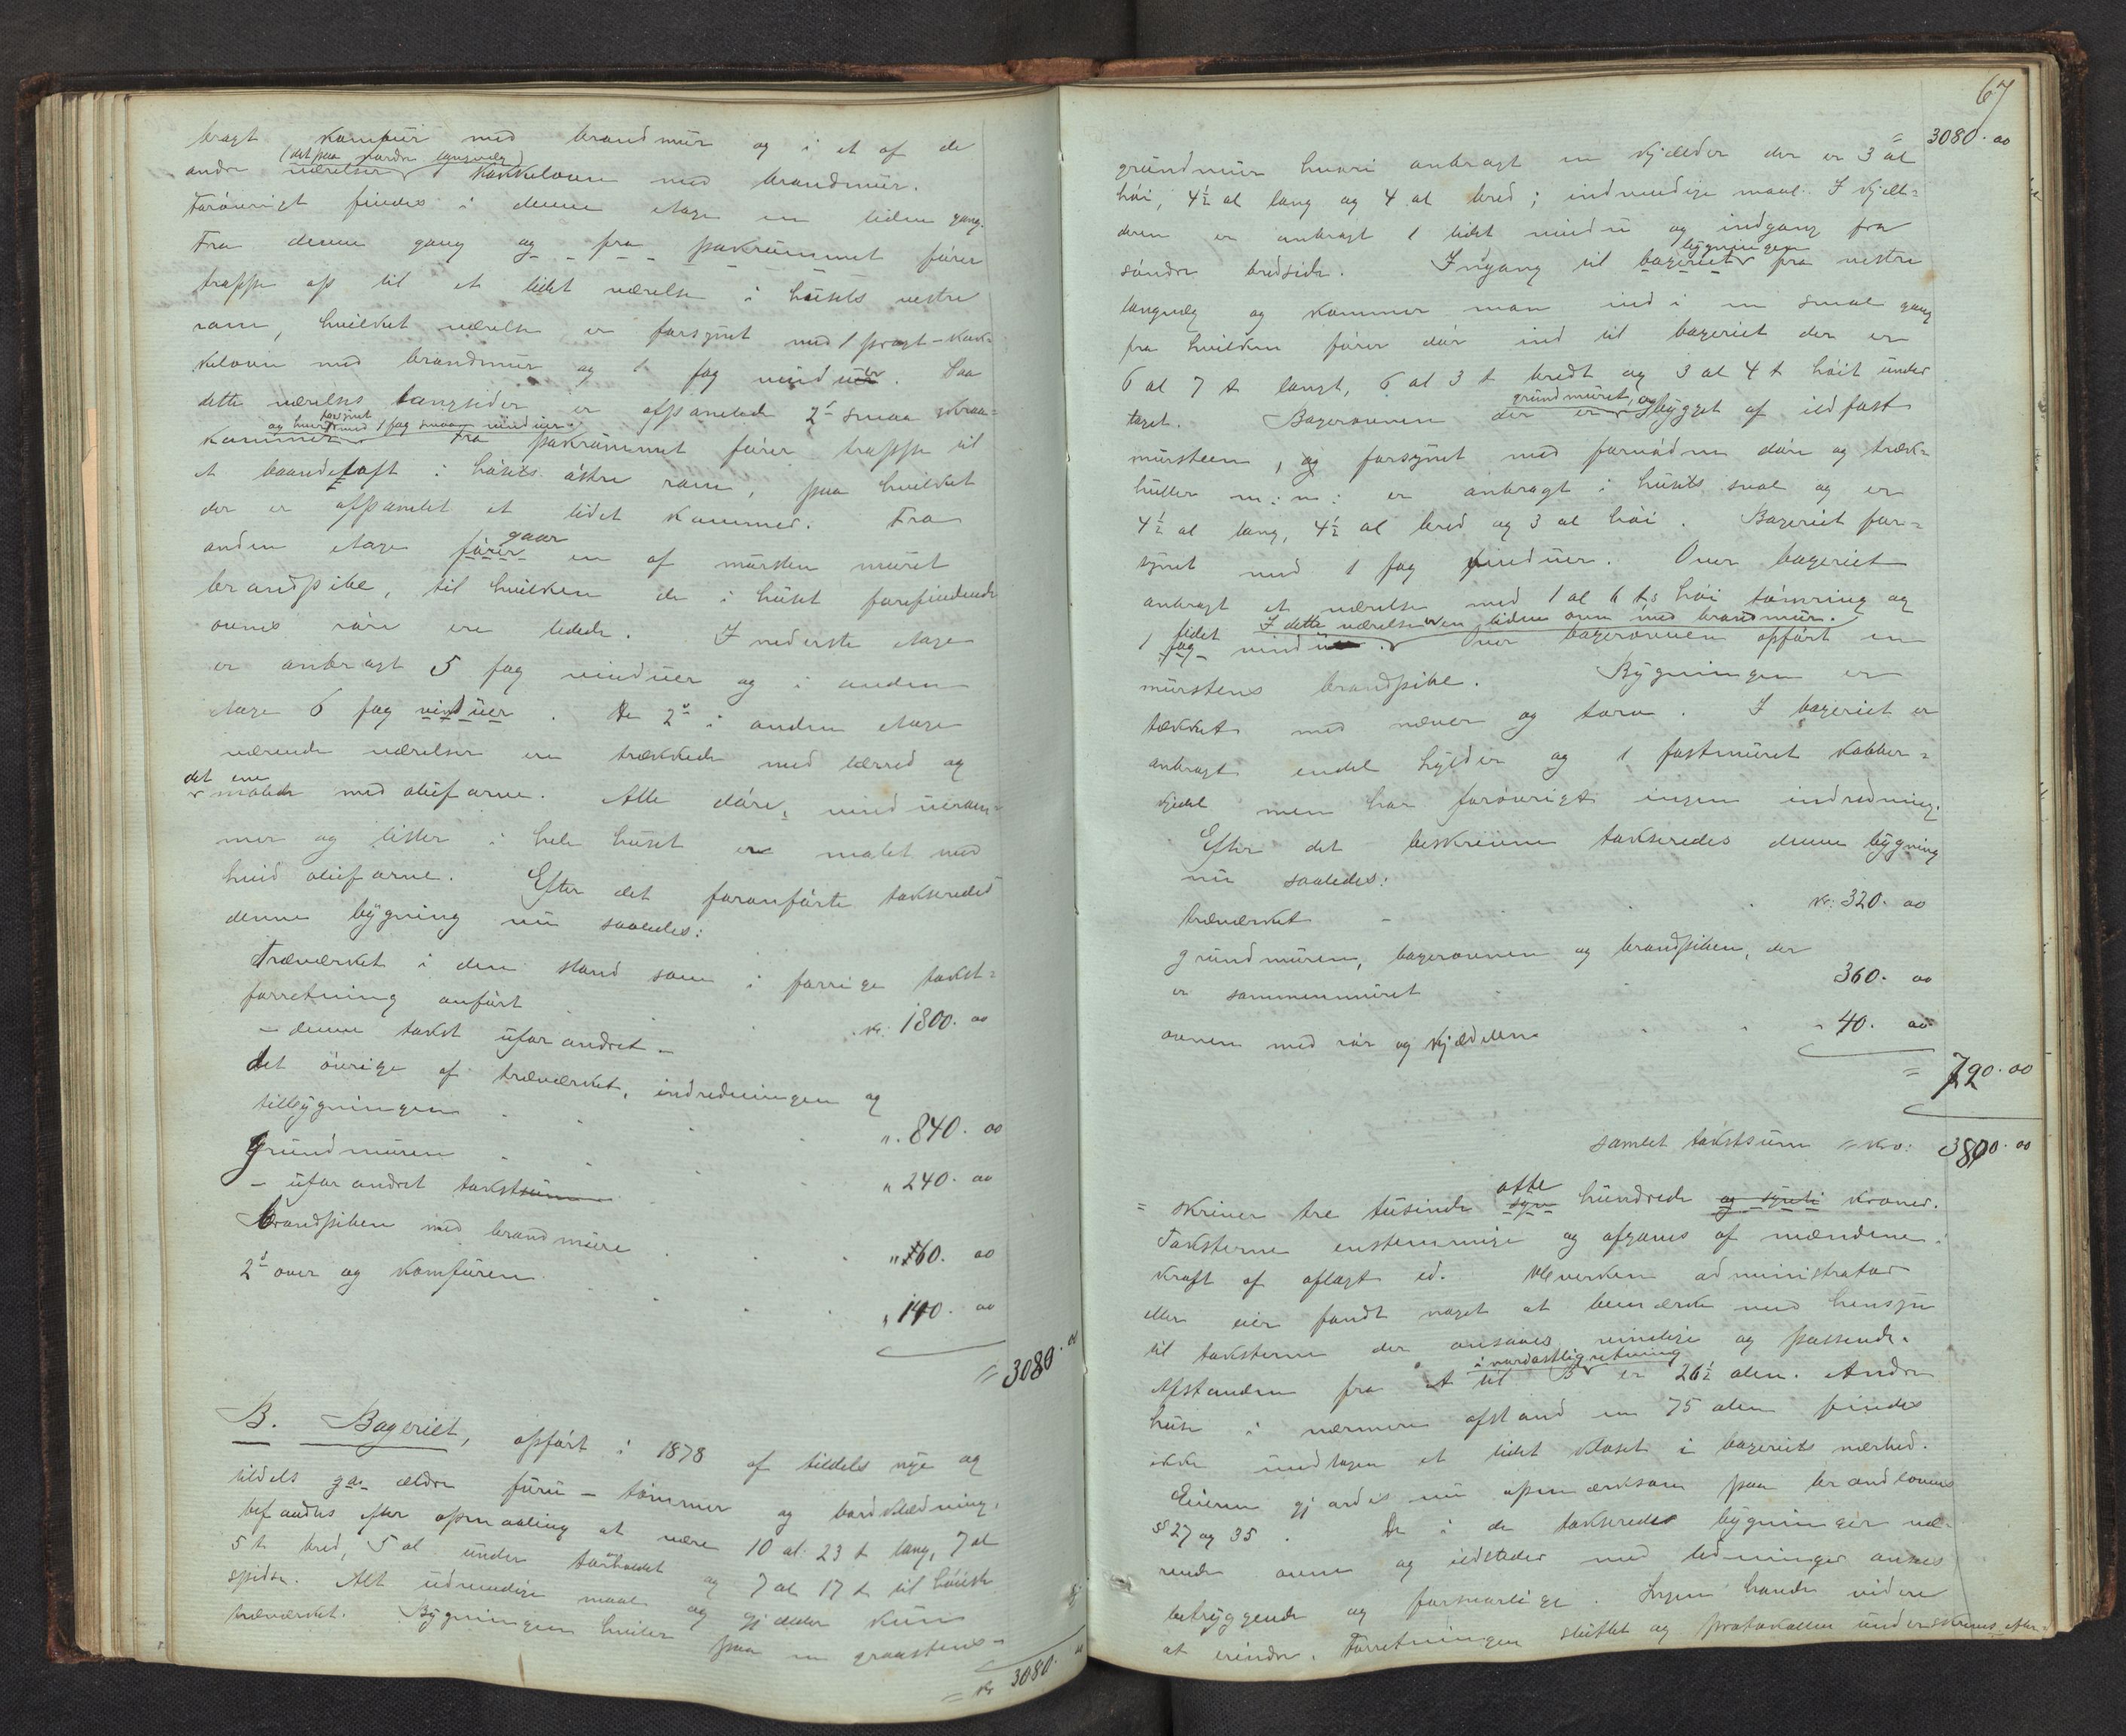 bragt komfur med brandmur og i et af de
(det paa nordre langvæg)
andre værelser kakkelovn med brandmur.
Forøvrigt findes i denne etage en liden gang.
Fra denne gang og fra pakrummet fører
trappe op til et lidet værelse i husets vestre
ram, hvilket værelse er forsynet med 1 pragt-kak-
kelovn med brandmur og 1 fag vinduer. Paa
dette værelses langsider er afpanelede 2de smaa skraa-
og hvert forsynet med 1 fag smaa vinduer
kammer. Fra pakrummet fører trappe til
et baandeloft i husets østre ram, paa hvilket
der er afpanelet et lidet kammer. Fra
gaar
anden etage fører en af mursten muret
brandpibe, til hvilken de i huset forefindende
ovnes rør ere ledede. I nederste etage
er anbragt 5 fag vinduer og i anden
etage 6 fag vinduer. De 2de i anden etage
værende værelser ere trækkede med lærred og
det ene
malede med oliefarve. Alle døre, vinduesram-
mer og lister i hele huset er malet med
hvid oliefarve. Efter det foranførte takseredes
denne bygning nu saaledes:
Træværket i den stand som i forrige takst-
forretning anført
- denne takst uforandret - kr: 1800. 00
det øvrige af træværket, indredningen og
tilbygningen " 840. 00
Grundmuren
- uforandret takstsum " 240. 00
brandpiben med brandmure " 60. 00
2de ovne og komfuren " 140. 00
= 3080. 00
B. Bageriet, opført i 1878 af tildels nye og
tildels ga. ældre furu-tømmer og bordklædning,
befandtes efter opmaaling at være 10 al: 23 t lang, 7 al
5 t bred, 5 al under tagskæget og 7 al 17 t til høieste
spidse. Alt udvendige maal og gjælder kun
træværket. Bygningen hviler paa en graastens-
= kr 3080. 00
67
= 3080. 00
grundmur hvori anbragt en kjælder der er 3 al
høi, 4½ al lang og 4 al bred; indvendige maal. I kjæl-
deren er anbragt 1 lidet vindu og indgang fra
bygningen
søndre bredside. Indgang til bageriet fra vestre
langvæg og kommer man ind i en smal gang
fra hvilken fører dør ind til bageriet der er
6 al 7 t langt, 6 al 3 t bredt og 3 al 4 t høit under
grundmuret, og
taget. Bagerovnen der er bygget af ildfast
mursten, og forsynet med fornødne døre og træk-
huller m: m: er anbragt i husets sval og er
4½ al lang, 4½ al bred og 3 al høi. Bageriet for-
synet med 1 fag vinduer. Over bageriet
anbragt et værelse med 1 al 6 ts høi tømring og
lidet I dette værelse er en liden ovn med brandmur.
1 fag vindu. Over bagerovnen opført en
murstens brandpibe. Bygningen er
tækket med næver og torv. I bageriet er
anbragt endel hylder og 1 fastmuret kobber-
kjedel men har forøvrigt ingen indredning.
Efter det beskrevne takseredes denne bygning
nu saaledes:
træværket kr: 320. 00
grundmuren, bagerovnen og brandpiben, der
er sammenmuret 360. 00
ovnen med rør og kjædelen " 40. 00
= 720. 00
samlet takstsum = kr: 3800. 00
otte
= skriver tre tusinde syv hundrede og syvti kroner.
Taksterne enstemmige og afgaves af mændene i
kraft af aflagt ed. Hverken administrator
eller eier fandt noget at bemærke med hensyn
til taksterne der ansaaes rimelige og passende.
i nordøstlig retning
Afstanden fra A til B er 26½ alen. Andre
huse i nærmere afstand en 75 alen findes
ikke undtagen et lidet kloset i bageriets nærhed.
Eieren gjordes nu opmærksom paa brandlovens
§§ 27 og 35. De i de takserede bygninger væ-
rende ovne og ildsteder med ledninger ansees
betryggende og forsvarlige. Ingen havde videre
at erindre. Forretningen sluttet og protokollen underskrives efter-